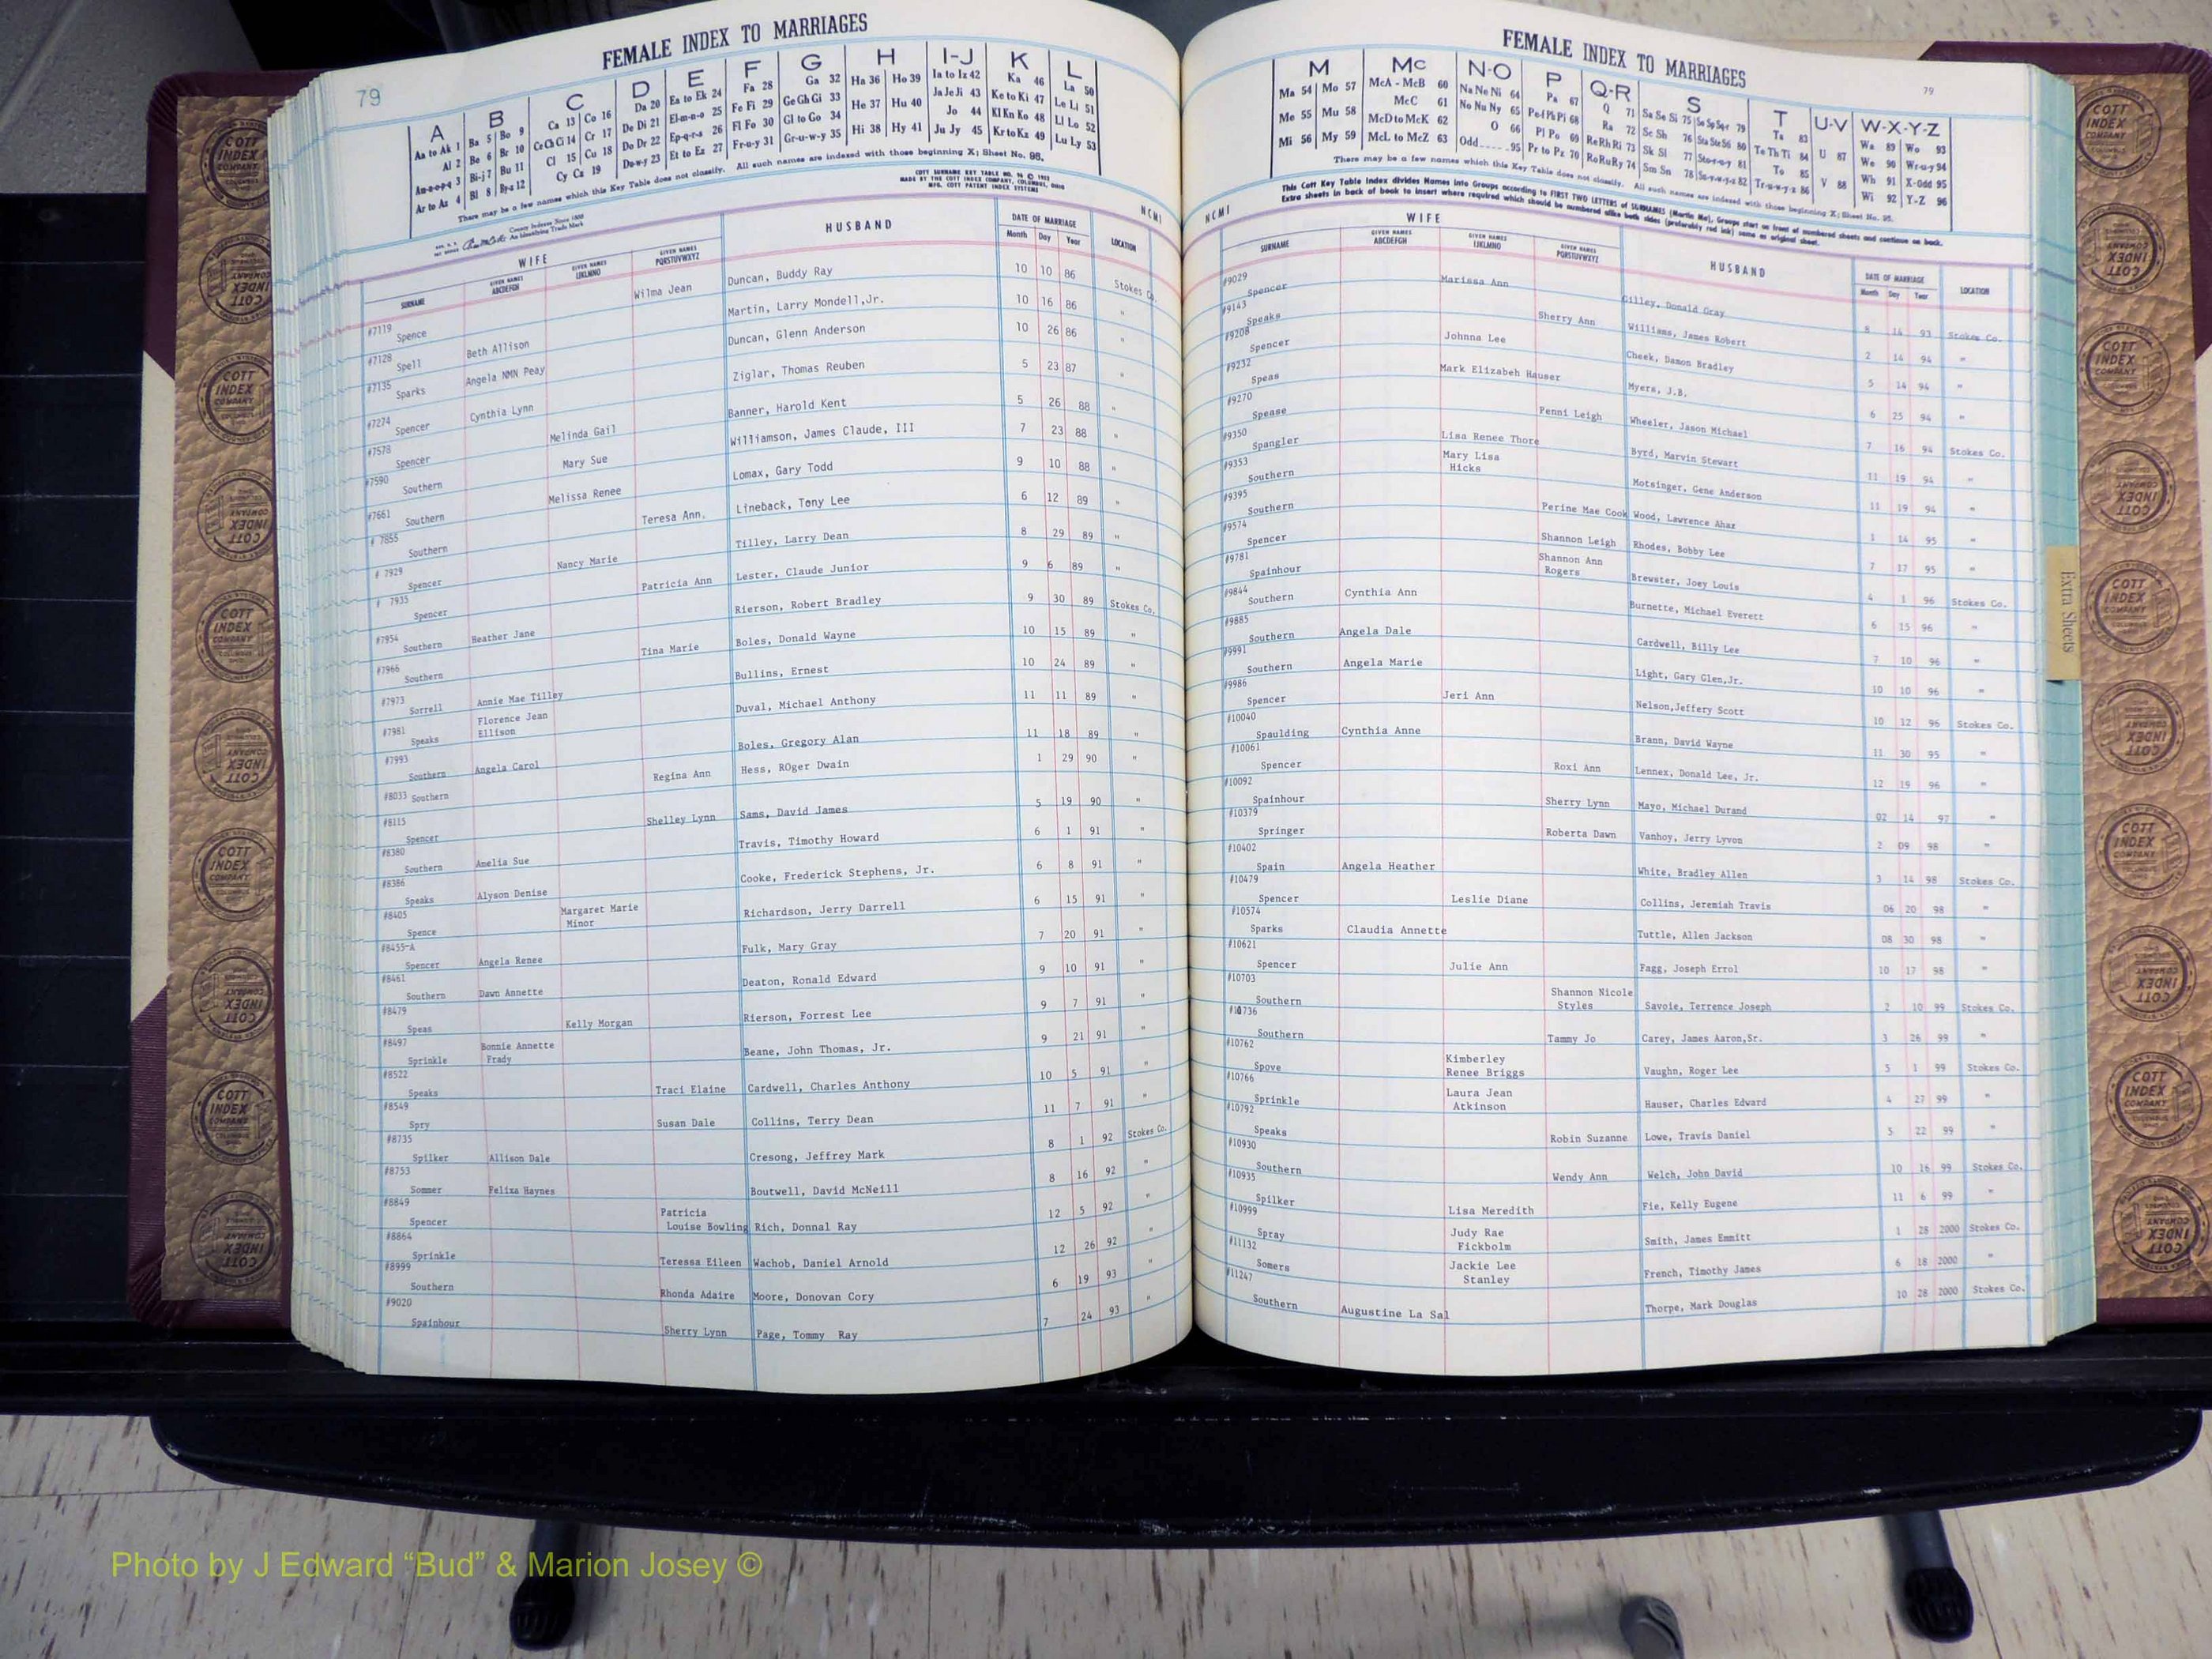 79
FEMALE INDEX TO MARRIAGES
A B C D E F G H I-J K L
Aa to Ak 1 Ba 5 Bo 9 Ca 13 Co 16 Da 20 Ea to Ek 24 Fa 28 Ga 32 Ha 36 Ho 39 Ia to Iz 42 Ka 46 La 50
Al 2 Be 6 Br 10 Ce Ch Ci 14 Cr 17 De Di 21 El-m-n-o 25 Fe Fi 29 Ge Gh Gi 33 He 37 Hu 40 Ja Je Ji 43 Ke to Ki 47 Le Li 51
Am-n-o-p-q 3 Bi-j 7 Bu 11 Cl 15 Cu 18 Do Dr 22 Ep-q-r-s 26 Fl Fo 30 Gl to Go 34 Hi 38 Hy 41 Jo 44 Kl Kn Ko 48 Ll Lo 52
Ar to Az 4 Bl 8 By-z 12 Cy Cz 19 Du-w-y 23 Et to Ez 27 Fr-u-y 31 Gr-u-w-y 35 Ju Jy 45 Kr to Kz 49 Lu Ly 53
There may be a few names which this Key Table does not classify. All such names are indexed with those beginning X; Sheet No. 95.
COTT SURNAME KEY TABLE NO.
MADE BY THE COTT INDEX COMPANY, COLUMBUS, OHIO
MFG. COTT PATENT INDEX SYSTEMS
County Indexes Since 1888
An Identifying Trade Mark
NCMI
WIFE HUSBAND DATE OF MARRIAGE LOCATION
SURNAME GIVEN NAMES ABCDEFGH GIVEN NAMES IJKLMNO GIVEN NAMES PQRSTUVWXYZ Month Day Year
#7119 Spence Wilma Jean Duncan, Buddy Ray 10 10 86 Stokes Co.
#7128 Spell Beth Allison Martin, Larry Mondell,Jr. 10 16 86 "
#7135 Sparks Angela NMN Peay Duncan, Glenn Anderson 10 26 86 "
#7274 Spencer Cynthia Lynn Ziglar, Thomas Reuben 5 23 87 "
#7578 Spencer Melinda Gail Banner, Harold Kent 5 26 88 "
#7590 Southern Mary Sue Williamson, James Claude, III 7 23 88 "
#7661 Southern Melissa Renee Lomax, Gary Todd 9 10 88 "
# 7855 Southern Teresa Ann. Lineback, Tony Lee 6 12 89 "
# 7929 Spencer Nancy Marie Tilley, Larry Dean 8 29 89 "
# 7935 Spencer Patricia Ann Lester, Claude Junior 9 6 89 "
#7954 Southern Heather Jane Rierson, Robert Bradley 9 30 89 Stokes Co.
#7966 Southern Tina Marie Boles, Donald Wayne 10 15 89 "
#7973 Sorrell Annie Mae Tilley Bullins, Ernest 10 24 89 "
#7981 Speaks Florence Jean Ellison Duval, Michael Anthony 11 11 89 "
#7993 Southern Angela Carol Boles, Gregory Alan 11 18 89 "
#8033 Southern Regina Ann Hess, ROger Dwain 1 29 90 "
#8115 Spencer Shelley Lynn Sams, David James 5 19 90 "
#8380 Southern Amelia Sue Travis, Timothy Howard 6 1 91 "
#8386 Speaks Alyson Denise Cooke, Frederick Stephens, Jr. 6 8 91 "
#8405 Spence Margaret Marie Minor Richardson, Jerry Darrell 6 15 91 "
#8455-A Spencer Angela Renee Fulk, Mary Gray 7 20 91 "
#8461 Southern Dawn Annette Deaton, Ronald Edward 9 10 91 "
#8479 Speas Kelly Morgan Rierson, Forrest Lee 9 7 91 "
#8497 Sprinkle Bonnie Annette Frady Beane, John Thomas, Jr. 9 21 91 "
#8522 Speaks Traci Elaine Cardwell, Charles Anthony 10 5 91 "
#8549 Spry Susan Dale Collins, Terry Dean 11 7 91 "
#8735 Spilker Allison Dale Cresong, Jeffrey Mark 8 1 92 Stokes Co.
#8753 Sommer Feliza Haynes Boutwell, David McNeill 8 16 92 "
#8849 Spencer Patricia Louise Bowling Rich, Donnal Ray 12 5 92 "
#8864 Sprinkle Teressa Eileen Wachob, Daniel Arnold 12 26 92 "
#8999 Southern Rhonda Adaire Moore, Donovan Cory 6 19 93 "
#9020 Spainhour Sherry Lynn Page, Tommy Ray 7 24 93 "
FEMALE INDEX TO MARRIAGES
79
M Mc N-O P Q-R S T U-V W-X-Y-Z
Ma 54 Mo 57 McA - McB 60 Na Ne Ni 64 Pa 67 Q 71 Sa Sc Si 75 So Sp Sq-r 79 Ta 83 U 87 Wa 89 Wo 93
Me 55 Mu 58 McC 61 No Nu Ny 65 Pe-f Ph Pi 68 Ra 72 Se Sh 76 Sta Ste 80 Te Th Ti 84 We 90 Wr-u-y 94
Mi 56 My 59 McD to McK 62 O 66 Pl Po 69 Re Rh Ri 73 Sk Sl 77 Sto-r-u-y 81 To 85 V 88 Wh 91 X-Odd 95
McL to McZ 63 Odd 95 Pr to Pz 70 Ro Ru Ry 74 Sm Sn 78 Su-v-w-y-z 82 Tr-u-w-y-z 86 Wi 92 Y-Z 96
There may be a few names which this Key Table does not classify. All such names are indexed with those beginning X; Sheet No. 95.
This Cott Key Table Index divides Names into Groups according to FIRST TWO LETTERS of SURNAMES (Martin Ma), Groups start on front of numbered sheets and continue on back.
Extra sheets in back of book to insert where required which should be numbered alike both sides (preferably red ink) same as original sheet.
NCMI
WIFE HUSBAND DATE OF MARRIAGE LOCATION
SURNAME GIVEN NAMES ABCDEFGH GIVEN NAMES IJKLMNO GIVEN NAMES PQRSTUVWXYZ Month Day Year
#9029 Spencer Marissa Ann Gilley, Donald Gray 8 14 93 Stokes Co.
#9143 Speaks Sherry Ann Williams, James Robert 2 14 94 "
#9208 Spencer Johnna Lee Cheek, Damon Bradley 5 14 94 "
#9232 Speas Mark Elizabeh Hauser Myers, J.B. 6 25 94 "
#9270 Spease Penni Leigh Wheeler, Jason Michael 7 16 94 Stokes Co.
#9350 Spangler Lisa Renee Thore Byrd, Marvin Stewart 11 19 94 "
#9353 Southern Mary Lisa Hicks Motsinger, Gene Anderson 11 19 94 "
#9395 Southern Perine Mae Cook Wood, Lawrence Ahaz 1 14 95 "
#9574 Spencer Shannon Leigh Rhodes, Bobby Lee 7 17 95 "
#9781 Spainhour Shannon Ann Rogers Brewster, Joey Louis 4 1 96 Stokes Co.
#9844 Southern Cynthia Ann Burnette, Michael Everett 6 15 96 "
#9885 Southern Angela Dale Cardwell, Billy Lee 7 10 96 "
#9991 Southern Angela Marie Light, Gary Glen,Jr. 10 10 96 "
#9986 Spencer Jeri Ann Nelson,Jeffery Scott 10 12 96 Stokes Co.
#10040 Spaulding Cynthia Anne Brann, David Wayne 11 30 95 "
#10061 Spencer Roxi Ann Lennex, Donald Lee, Jr. 12 19 96 "
#10092 Spainhour Sherry Lynn Mayo, Michael Durand 02 14 97 "
#10379 Springer Roberta Dawn Vanhoy, Jerry Lyvon 2 09 98 "
#10402 Spain Angela Heather White, Bradley Allen 3 14 98 Stokes Co.
#10479 Spencer Leslie Diane Collins, Jeremiah Travis 06 20 98 "
#10574 Sparks Claudia Annette Tuttle, Allen Jackson 08 30 98 "
#10621 Spencer Julie Ann Fagg, Joseph Errol 10 17 98 "
#10703 Southern Shannon Nicole Styles Savoie, Terrence Joseph 2 10 99 Stokes Co.
#10736 Southern Tammy Jo Carey, James Aaron,Sr. 3 26 99 "
#10762 Spove Kimberley Renee Briggs Vaughn, Roger Lee 5 1 99 Stokes Co.
#10766 Sprinkle Laura Jean Atkinson Hauser, Charles Edward 4 27 99 "
#10792 Speaks Robin Suzanne Lowe, Travis Daniel 5 22 99 "
#10930 Southern Wendy Ann Welch, John David 10 16 99 Stokes Co.
#10935 Spilker Lisa Meredith Fie, Kelly Eugene 11 6 99 "
#10999 Spray Judy Rae Fickbolm Smith, James Emmitt 1 28 2000 Stokes Co.
#11132 Somers Jackie Lee Stanley French, Timothy James 6 18 2000 "
#11247 Southern Augustine La Sal Thorpe, Mark Douglas 10 28 2000 Stokes Co.
Extra Sheets
COTT INDEX COMPANY COLUMBUS OHIO
Photo by J Edward “Bud” & Marion Josey ©